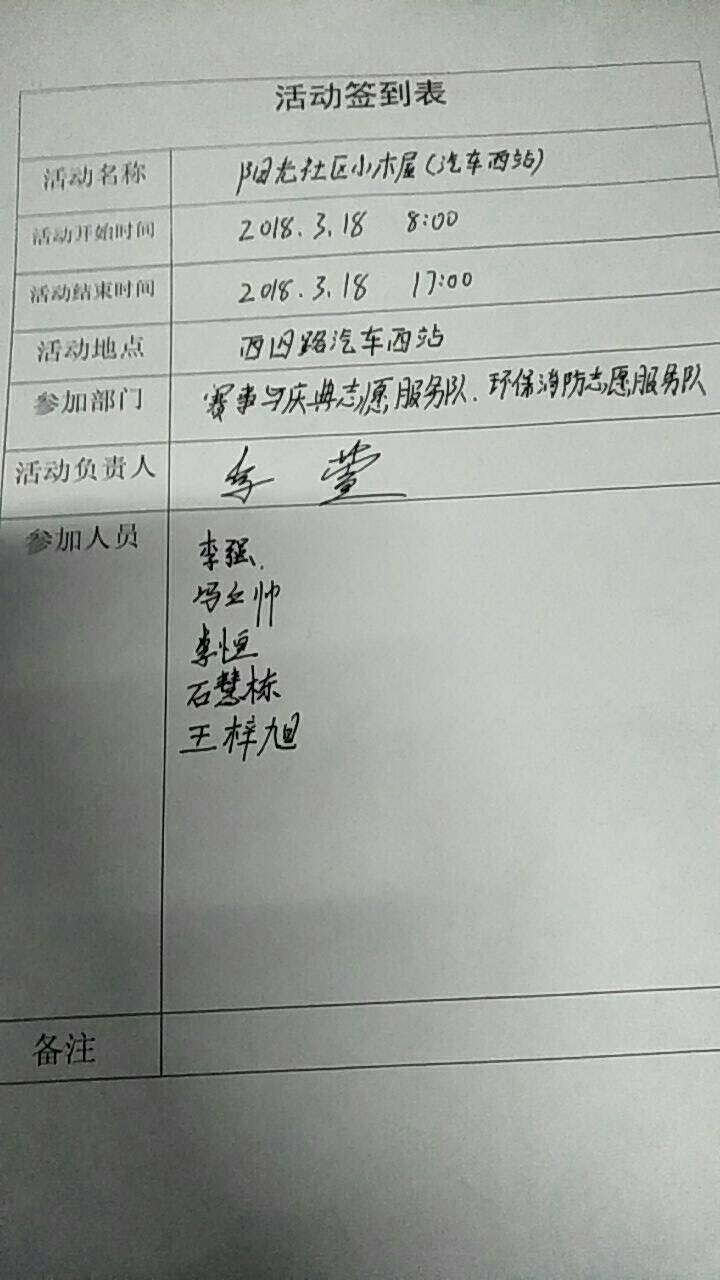 活动签到表
活动名称 阳光社区小木屋(汽车西站)
活动开始时间 2018.3.18 8:00
活动结束时间 2018.3.18 17:00
活动地点 西四路汽车西站
参加部门 赛事与庆典志愿服务队、环保消防志愿服务队
活动负责人 李萱
参加人员 李强
冯立帅
李恒
石慧栋
王梓旭
备注